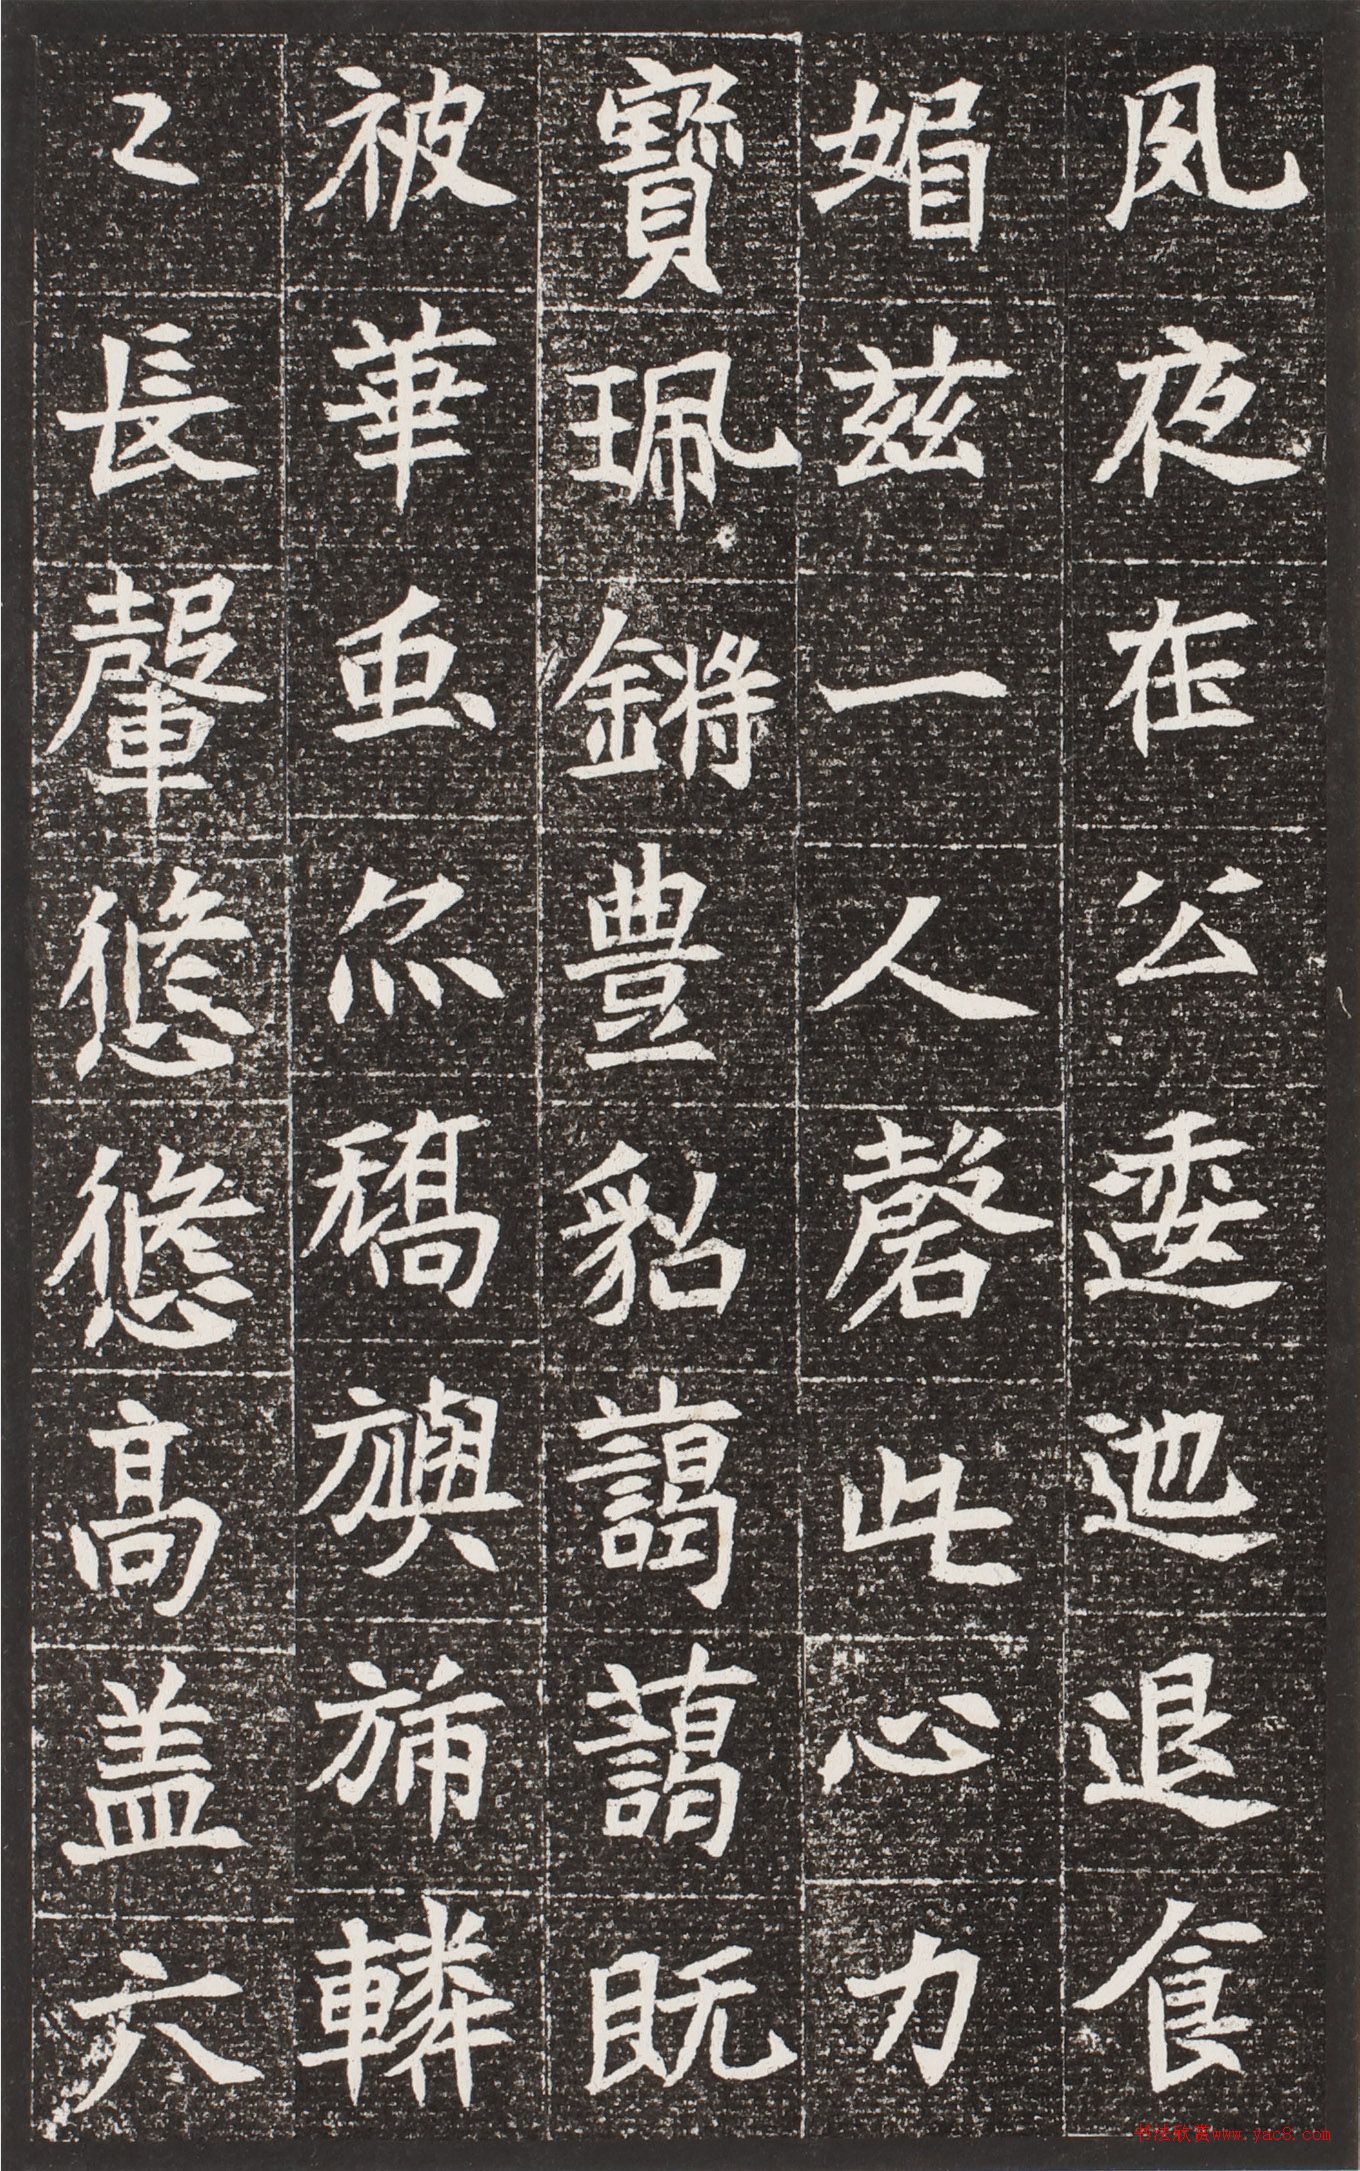 夙夜在公逶迤退食
媚茲一人磬此心力
寶珮鏘豊貂藹藹既
被華虫亦矯旟旆轔
〻長轂悠悠高盖六
书法欣赏www.yac8.com